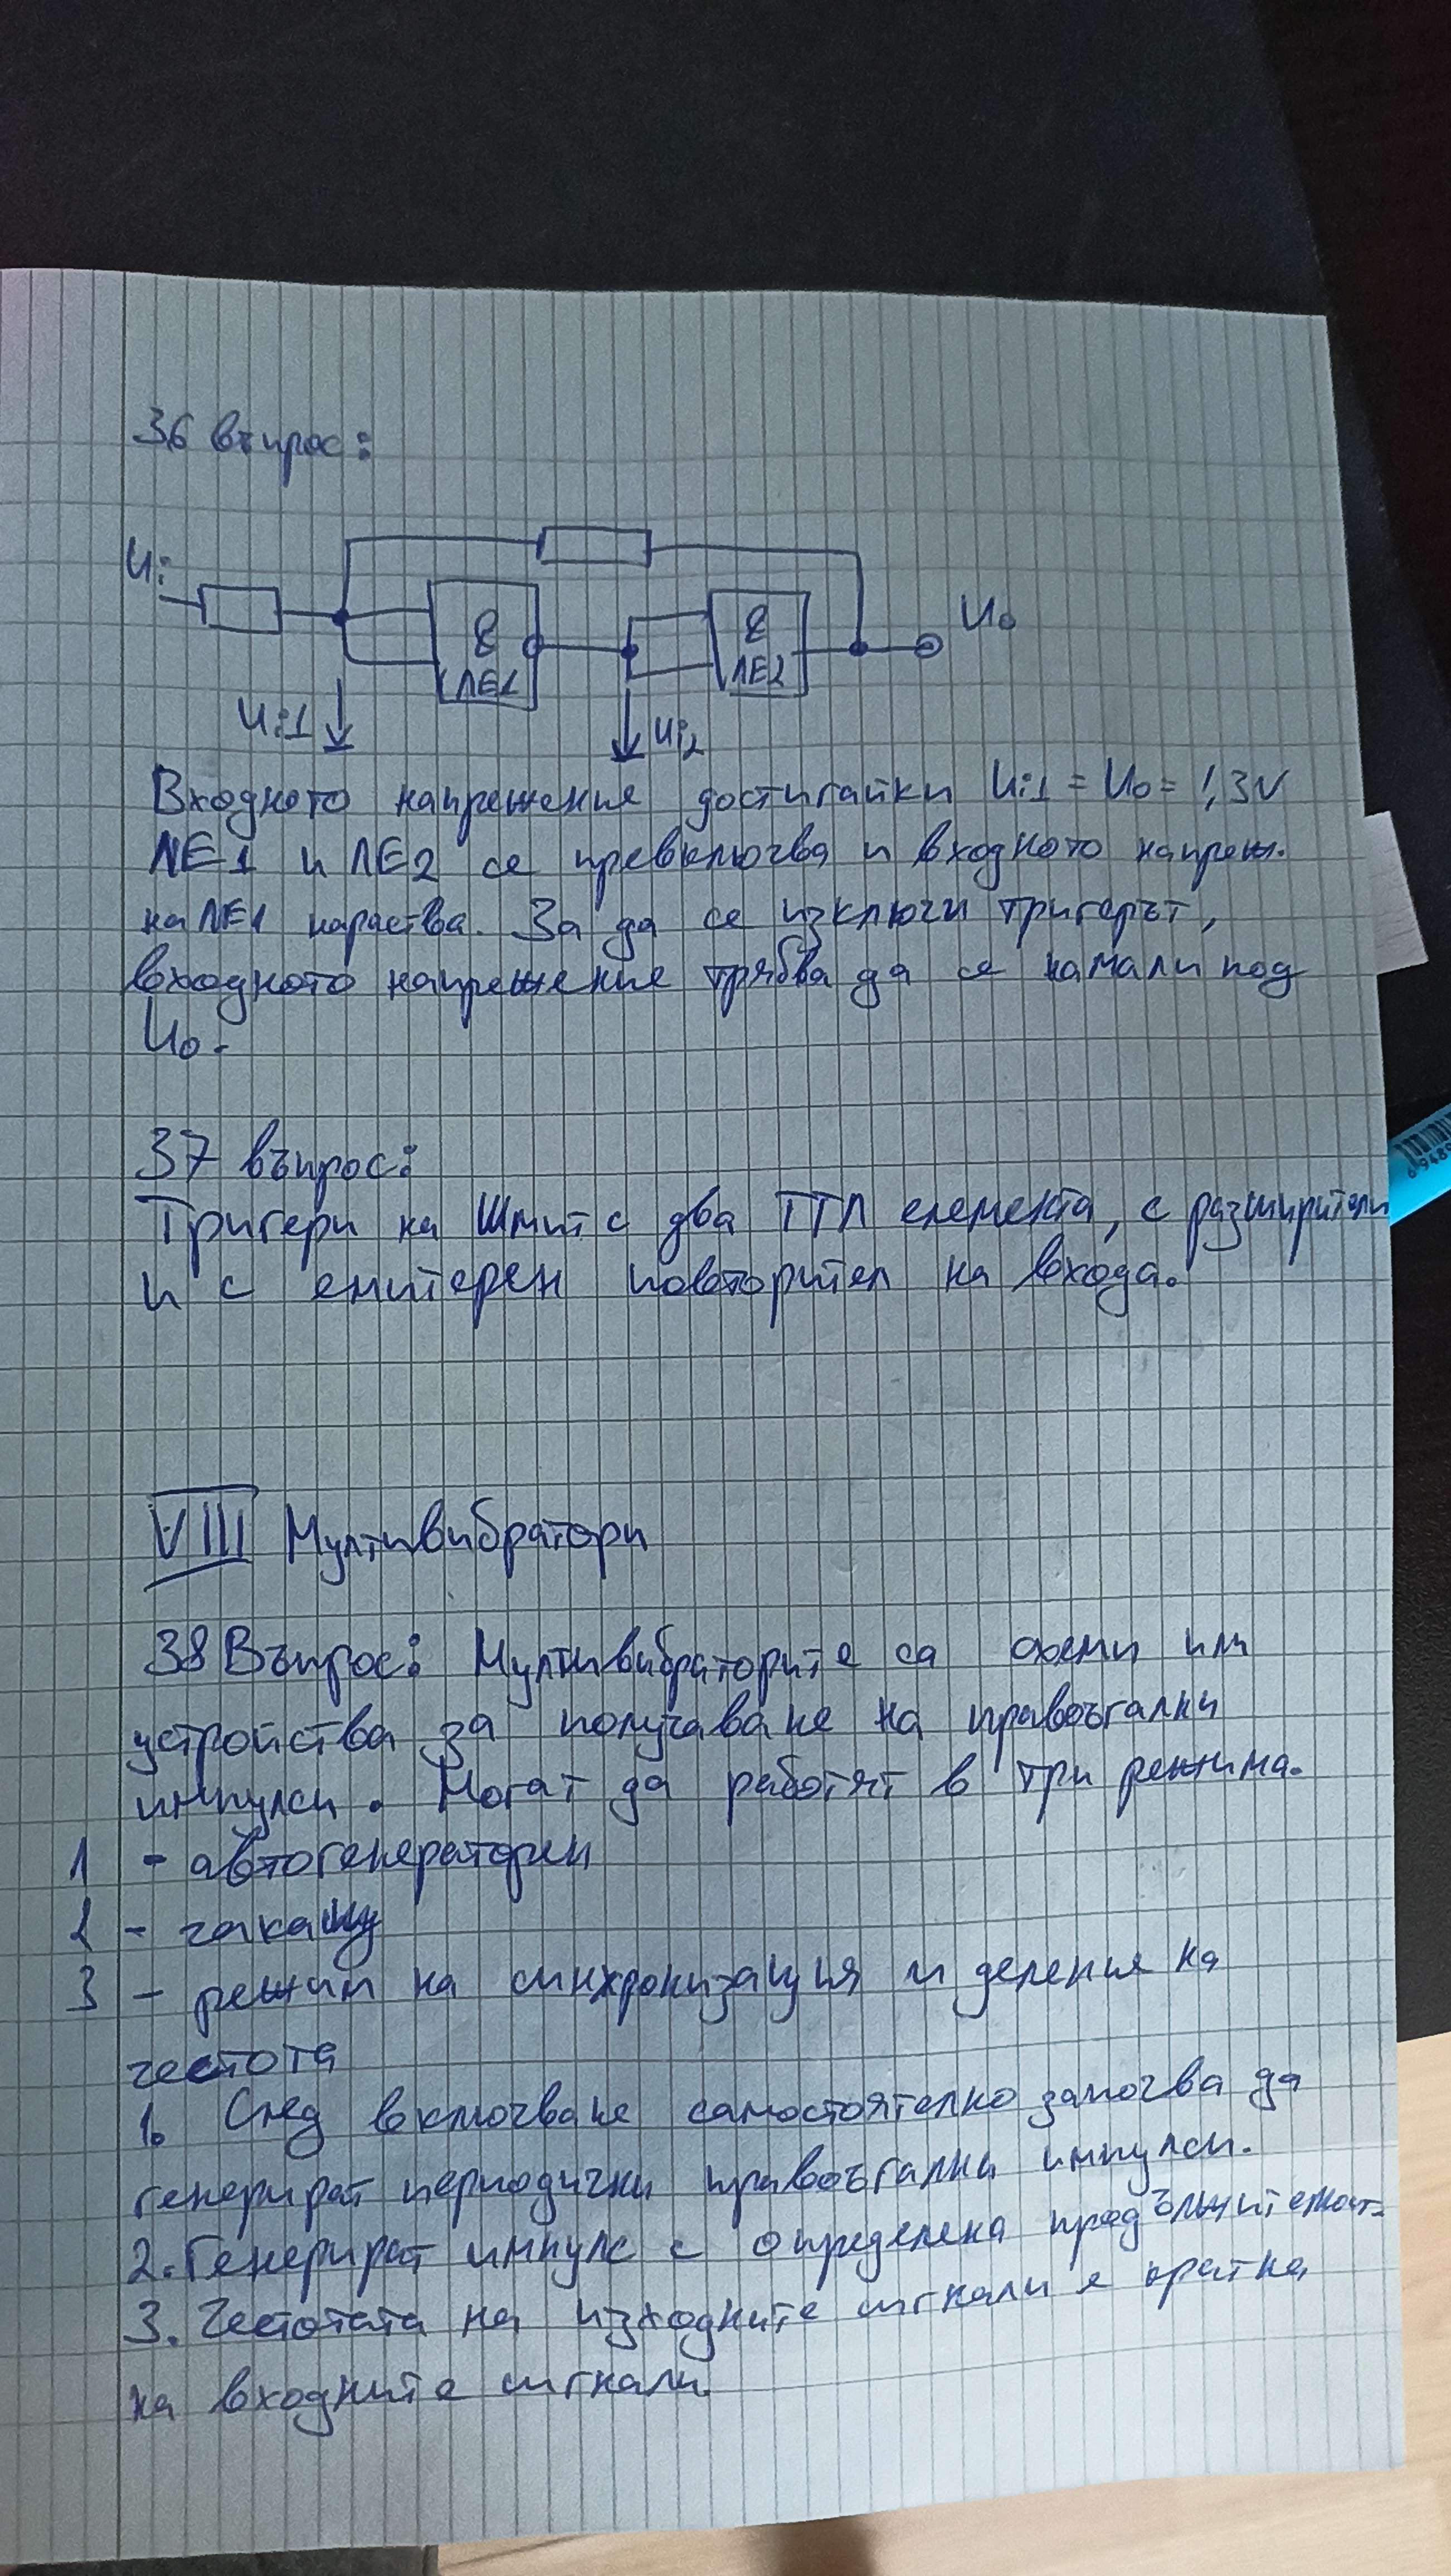 36 въпрос:
Ui
&
ЛЕ1
&
ЛЕ2
Uo
Ui1
Ui2
Входното напрежение достигайки Ui1 = Uo = 1,3V
ЛЕ1 и ЛЕ2 се превключва и входното напреж.
на ЛЕ1 нараства. За да се изключи тригерът,
входното напрежение трябва да се намали под
Uo.
37 въпрос:
Тригери на Шмит с два ТТЛ елемента, с разширители
и с емитерен повторител на входа.
VIII Мултивибратори
38 Въпрос: Мултивибраторите са схеми или
устройства за получаване на правоъгълни
импулси. Могат да работят в три режима.
1 - автогенераторен
2 - чакащ
3 - режим на синхронизация и деление на
честота
1. След включване самостоятелно започва да
генерират периодични правоъгълни импулси.
2. Генерират импулс с определена продължителност.
3. Честотата на изходните сигнали е кратна
на входните сигнали.